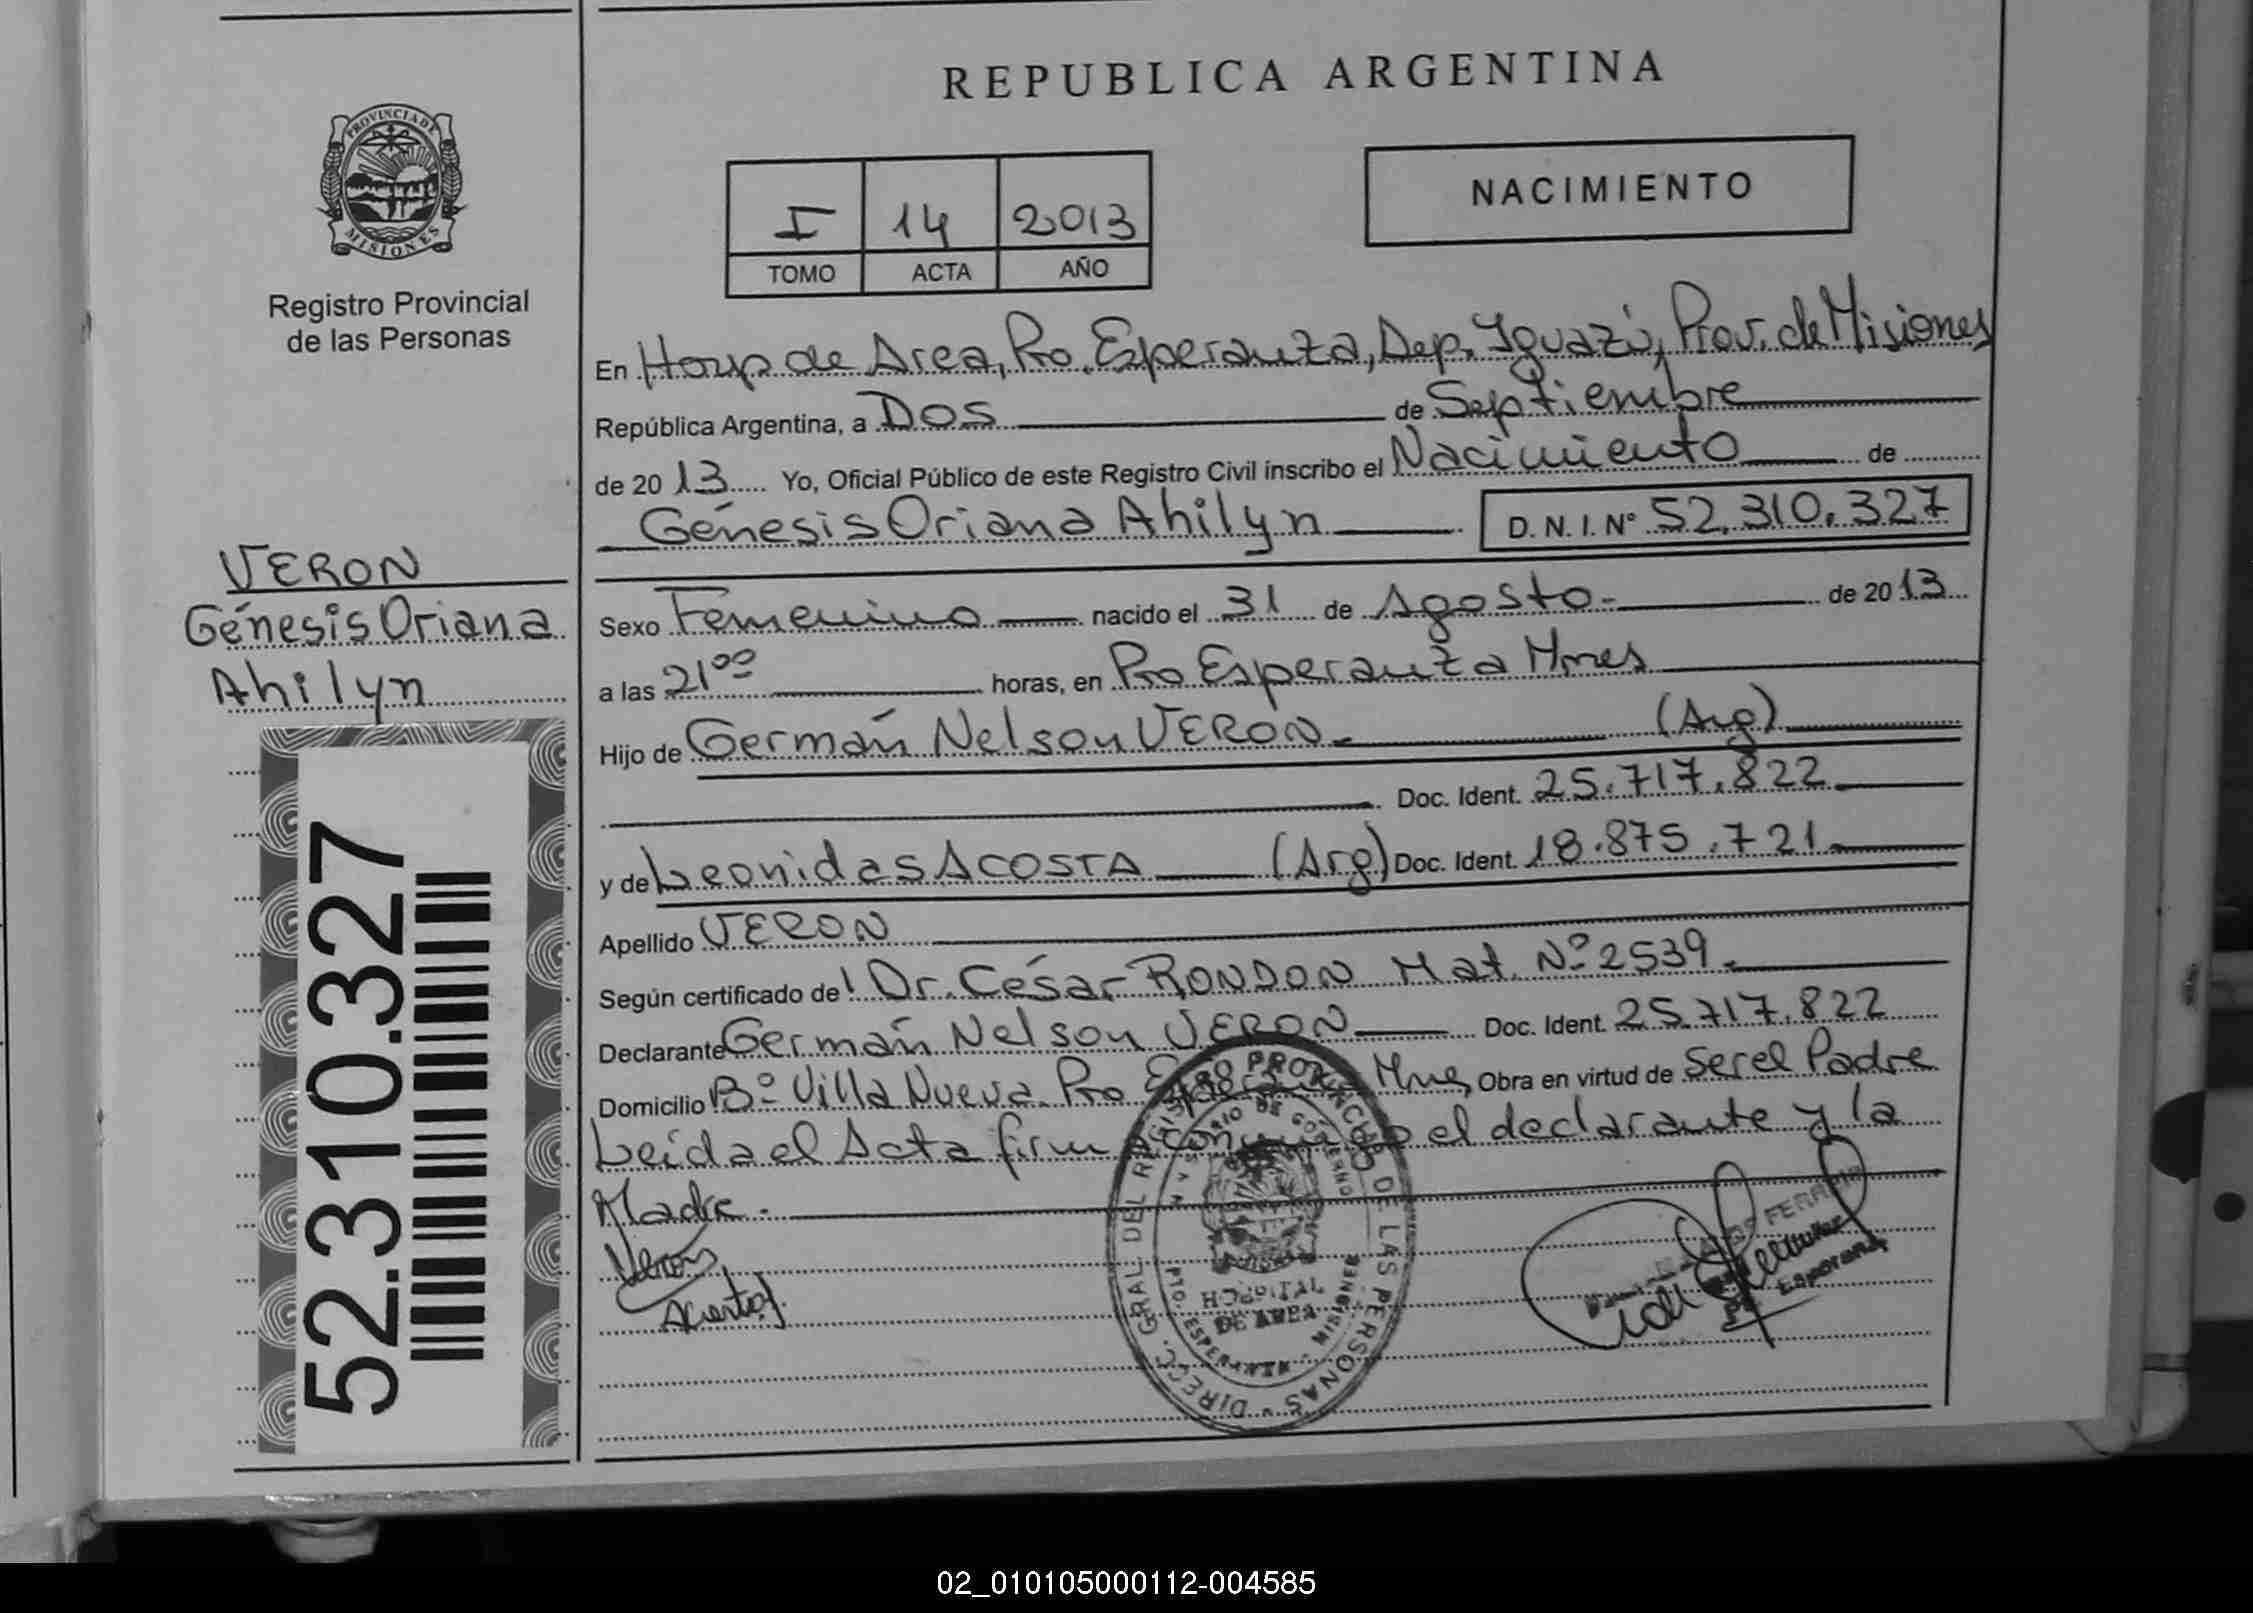 REPUBLICA ARGENTINA
PROVINCIA DE
MISIONES
Registro Provincial
de las Personas
I 14 2013
TOMO ACTA AÑO
NACIMIENTO
En Hosp de Area, Pto. Esperanza, Dep. Iguazú, Prov. de Misiones
República Argentina, a Dos de Septiembre
de 20 13 Yo, Oficial Público de este Registro Civil inscribo el Nacimiento de
Génesis Oriana Ahilyn D. N. I. Nº 52.310.327
VERON
Génesis Oriana
Ahilyn
Sexo Femenino nacido el 31 de Agosto.- de 20 13
a las 21⁰⁰ horas, en Pto Esperanza Mnes
Hijo de Germán Nelson VERON.- (Arg)
Doc. Ident. 25.717.822
y de Leonidas ACOSTA (Arg) Doc. Ident. 18.875.721
Apellido VERON
Según certificado de l Dr. César RONDON Mat. Nº 2539.
Declarante Germán Nelson VERON Doc. Ident. 25.717.822
Domicilio Bº Villa Nueva Pto Esperanza Mnes Obra en virtud de Ser el Padre
Leída el Acta firma conmigo el declarante y la
Madre.-
52.310.327
DIREC. GRAL DEL REGISTRO PROVINCIAL DE LAS PERSONAS
MINISTERIO DE GOBIERNO
HOSPITAL
DE AREA
PTO. ESPERANZA - MISIONES
Esperanza
02_010105000112-004585